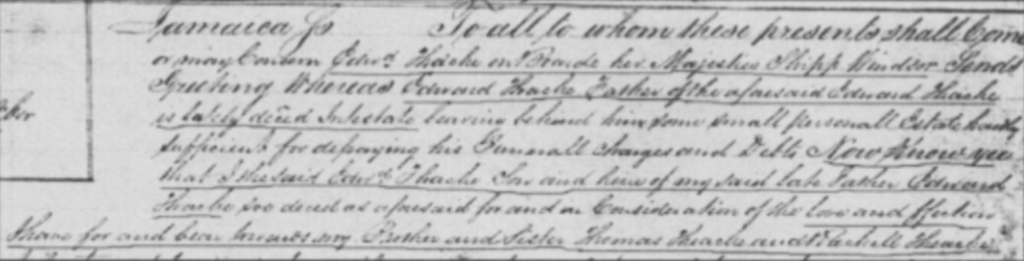 Jamaica Ss To all to whom these presents shall Come
or may Concern Edwd. Thache on Board her Majesties Shipp Windsor Sends
Greeting Whereas Edward Thache Father of the aforesaid Edward Thache
is lately deced Intestate leaving behind him some small personall Estate hardly
sufficient for defraying his Funerall charges and Debts Now Know yee
that I the said Edwd. Thache Son and heire of my said late Father Edward
Thache soe deced as aforesaid for and in Consideration of the love and Affection
I have for and bear towards my Brother and Sister Thomas Theache and Rachell Theache